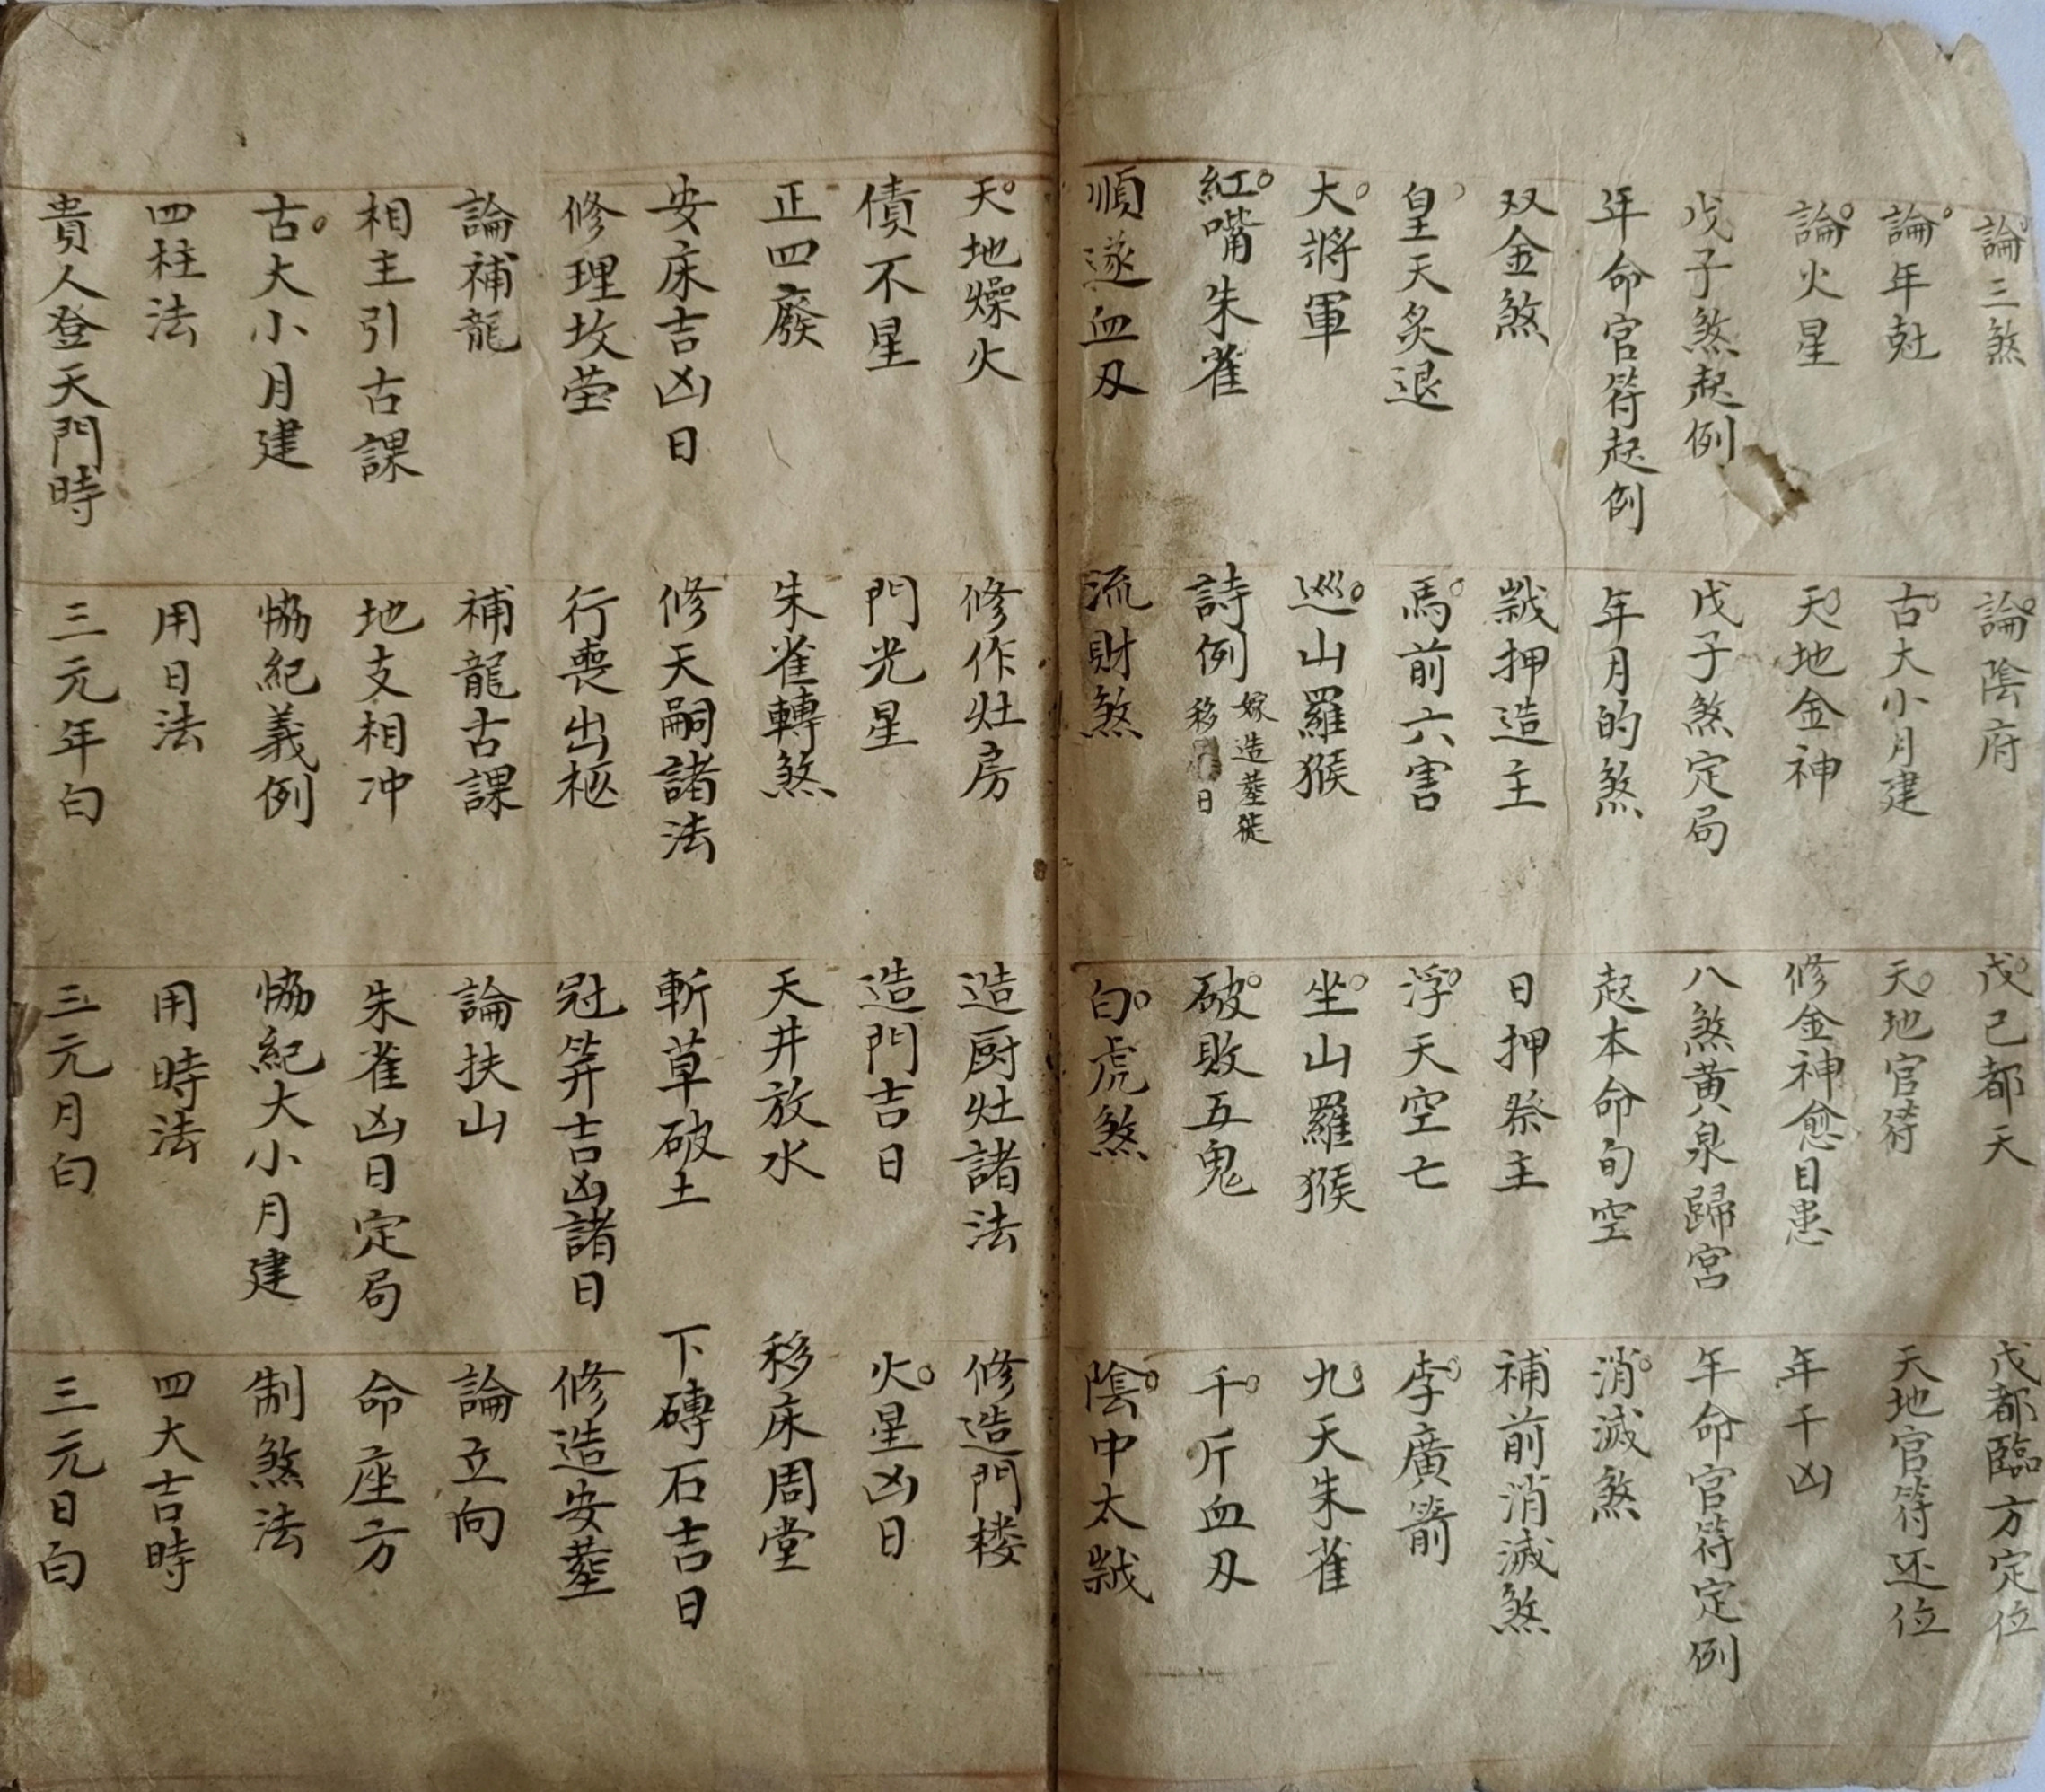 論三煞 論陰府 戊己都天 戊都臨方定位
論年尅 古大小月建 天地官符 天地官符还位
論火星 天地金神 修金神愈目患 年干凶
戊子煞起例 戊子煞定局 八煞黄泉歸宮 年命官符定例
年命官符起例 年月的煞 起本命旬空 消滅煞
双金煞 歲押造主 日押祭主 補前消滅煞
皇天炙退 馬前六害 浮天空亡 李廣箭
大將軍 巡山羅猴 坐山羅猴 九天朱雀
紅嘴朱雀 詩例 嫁造塟徙移日 破敗五鬼 千斤血刃
順逐血刃 流財煞 白虎煞 陰中太歲
天地燥火 修作灶房 造厨灶諸法 修造門楼
債不星 門光星 造門吉日 火星凶日
正四廢 朱雀轉煞 天井放水 移床周堂
安床吉凶日 修天嗣諸法 斬草破土 下磚石吉日
修理坟茔 行喪出柩 冠笄吉凶諸日 修造安塟
論補龍 補龍古課 論扶山 論立向
相主引古課 地支相冲 朱雀凶日定局 命座方
古大小月建 恊紀義例 恊紀大小月建 制煞法
四柱法 用日法 用時法 四大吉時
貴人登天門時 三元年白 三元月白 三元日白